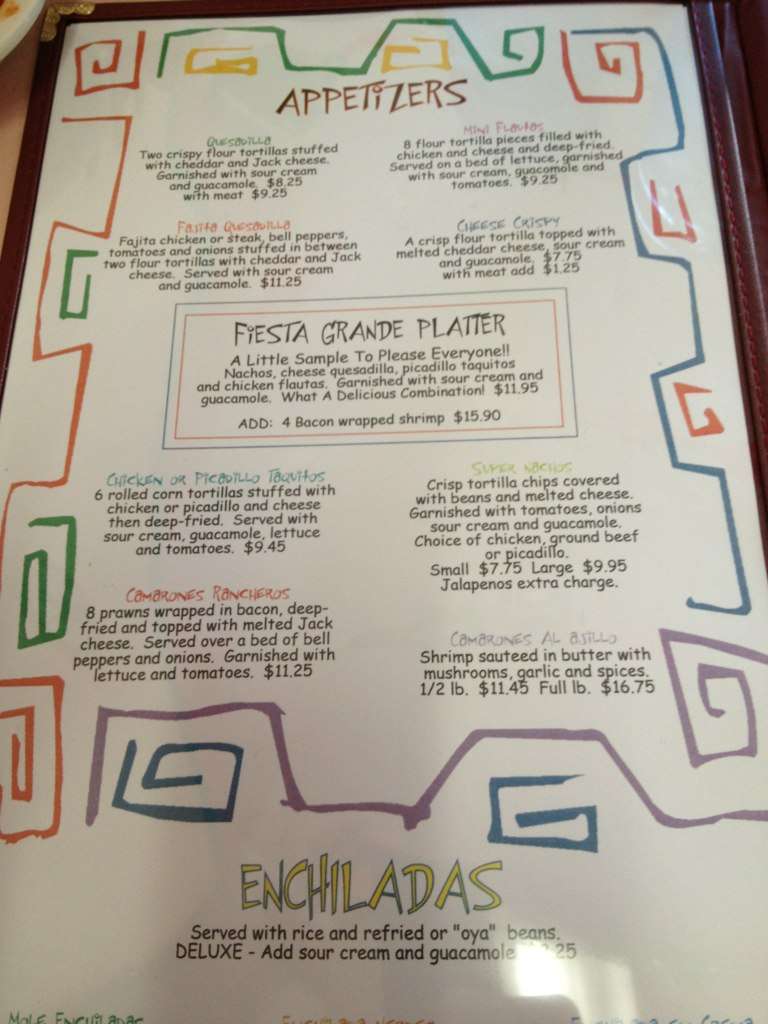 APPETIZERS
QUESADILLA
Two crispy flour tortillas stuffed
with cheddar and Jack cheese.
Garnished with sour cream
and guacamole. $8.25
with meat $9.25
MINI FLAUTAS
8 flour tortilla pieces filled with
chicken and cheese and deep-fried.
Served on a bed of lettuce, garnished
with sour cream, guacomole and
tomatoes. $9.25
FAJITA QUESADILLA
Fajita chicken or steak, bell peppers,
tomatoes and onions stuffed in between
two flour tortillas with cheddar and Jack
cheese. Served with sour cream
and guacamole. $11.25
CHEESE CRISPY
A crisp flour tortilla topped with
melted cheddar cheese, sour cream
and guacamole. $7.75
with meat add $1.25
FIESTA GRANDE PLATTER
A Little Sample To Please Everyone!!
Nachos, cheese quesadilla, picadillo taquitos
and chicken flautas. Garnished with sour cream and
guacamole. What A Delicious Combination! $11.95
ADD: 4 Bacon wrapped shrimp $15.90
CHICKEN OR PICADILLO TAQUITOS
6 rolled corn tortillas stuffed with
chicken or picadillo and cheese
then deep-fried. Served with
sour cream, guacamole, lettuce
and tomatoes. $9.45
SUPER NACHOS
Crisp tortilla chips covered
with beans and melted cheese.
Garnished with tomatoes, onions
sour cream and guacamole.
Choice of chicken, ground beef
or picadillo.
Small $7.75 Large $9.95
Jalapenos extra charge.
CAMARONES RANCHEROS
8 prawns wrapped in bacon, deep-
fried and topped with melted Jack
cheese. Served over a bed of bell
peppers and onions. Garnished with
lettuce and tomatoes. $11.25
CAMARONES AL AJILLO
Shrimp sauteed in butter with
mushrooms, garlic and spices.
1/2 lb. $11.45 Full lb. $16.75
ENCHILADAS
Served with rice and refried or "oya" beans.
DELUXE - Add sour cream and guacamole
MOLE ENCHILADAS